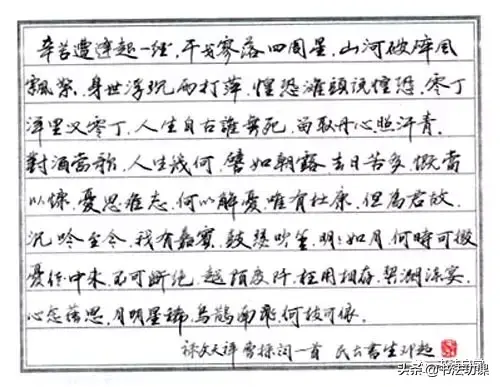 辛苦遭逢起一经,干戈寥落四周星,山河破碎風
飄絮,身世浮沉雨打萍,惶恐灘頭説惶恐,零丁
洋里叹零丁,人生自古誰無死,留取丹心照汗青.
對酒當歌,人生幾何,譬如朝露,去日苦多,慨當
以慷,憂思難忘,何以解憂,唯有杜康,但為君故,
沉吟至今,我有嘉賓,鼓瑟吹笙,明明如月,何時可掇
憂從中来,不可断绝,越陌度阡,枉用相存,契濶談宴,
心念舊恩,月明星稀,烏鵲南飛,何枝可依.
録文天祥曹操詞一首
头条 @书法功课